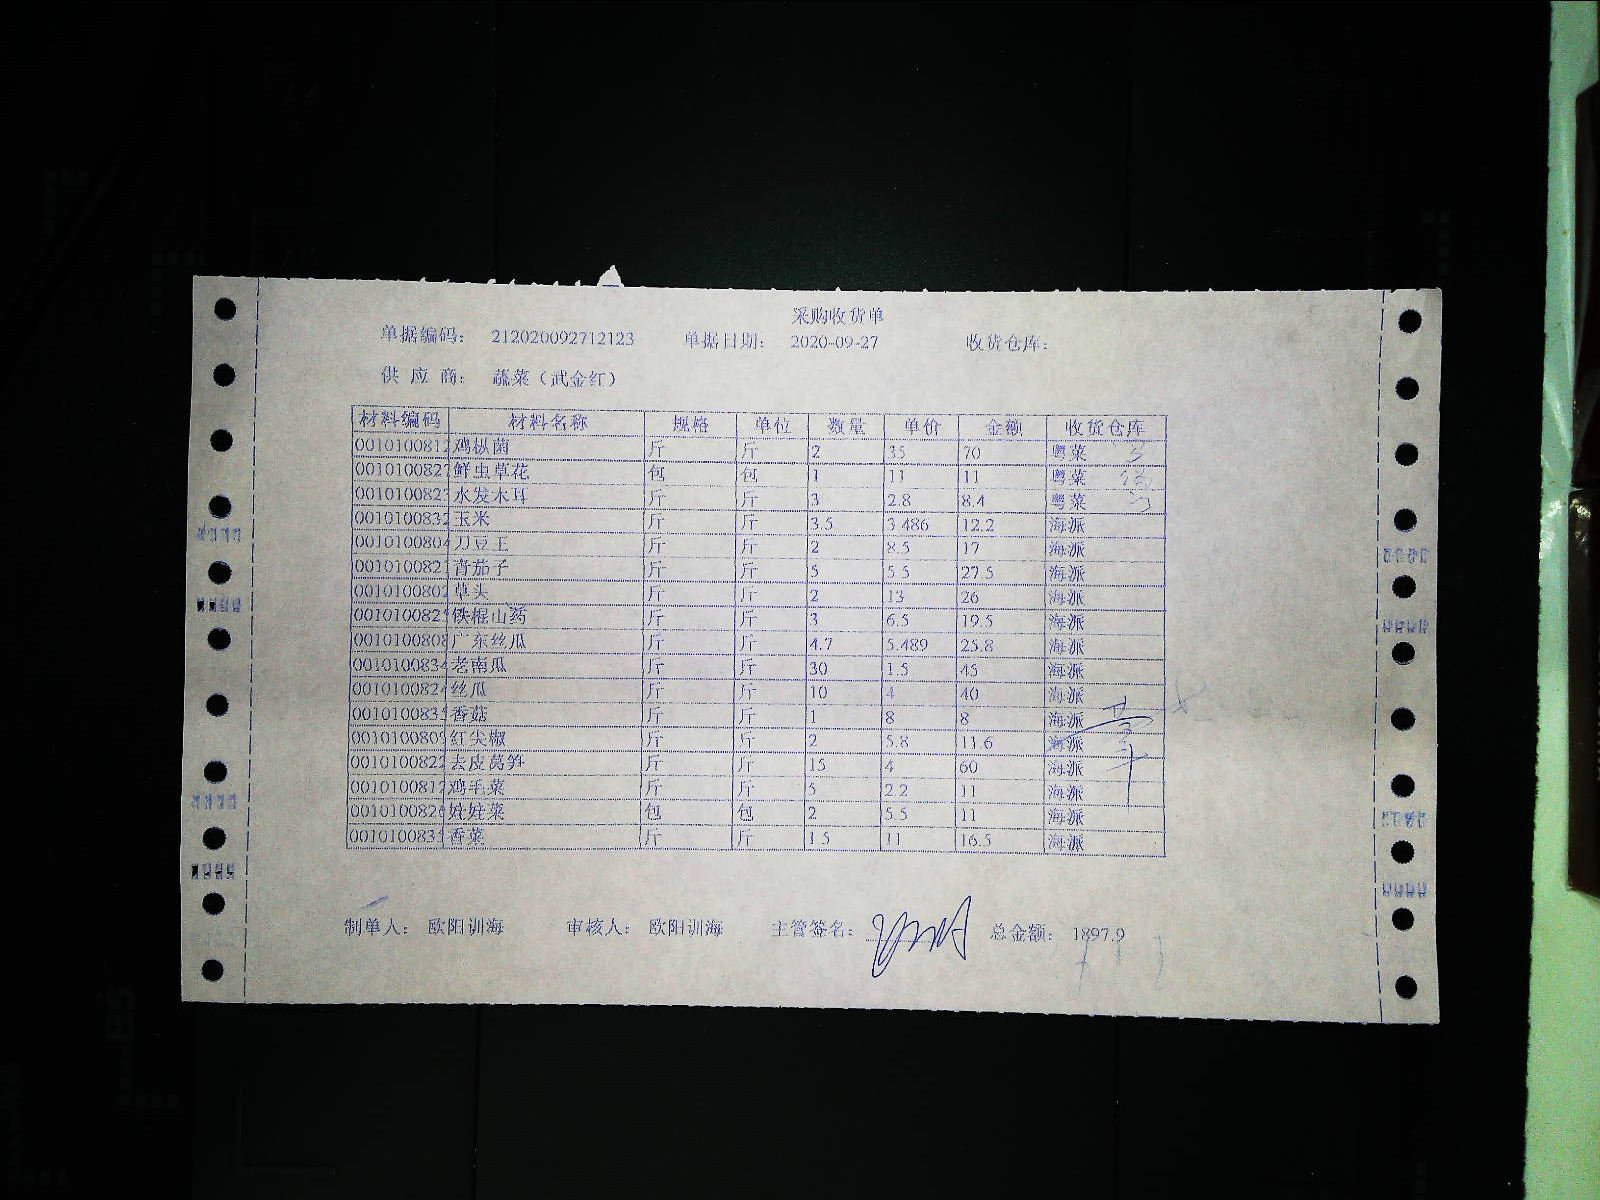 采购收货单
单据编码： 212020092712123 单据日期： 2020-09-27 收货仓库：
供 应 商： 蔬菜（武金红）
材料编码 材料名称 规格 单位 数量 单价 金额 收货仓库
0010100812 鸡枞菌 斤 斤 2 35 70 粤菜
0010100827 鲜虫草花 包 包 1 11 11 粤菜
0010100823 水发木耳 斤 斤 3 2.8 8.4 粤菜
0010100832 玉米 斤 斤 3.5 3.486 12.2 海派
0010100804 刀豆王 斤 斤 2 8.5 17 海派
0010100821 青茄子 斤 斤 5 5.5 27.5 海派
0010100802 草头 斤 斤 2 13 26 海派
0010100825 铁棍山药 斤 斤 3 6.5 19.5 海派
0010100808 广东丝瓜 斤 斤 4.7 5.489 25.8 海派
0010100834 老南瓜 斤 斤 30 1.5 45 海派
0010100824 丝瓜 斤 斤 10 4 40 海派
0010100835 香菇 斤 斤 1 8 8 海派
0010100809 红尖椒 斤 斤 2 5.8 11.6 海派
0010100822 去皮莴笋 斤 斤 15 4 60 海派
0010100812 鸡毛菜 斤 斤 5 2.2 11 海派
0010100826 娃娃菜 包 包 2 5.5 11 海派
0010100835 香菜 斤 斤 1.5 11 16.5 海派
制单人： 欧阳训海 审核人： 欧阳训海 主管签名： 总金额： 1897.9